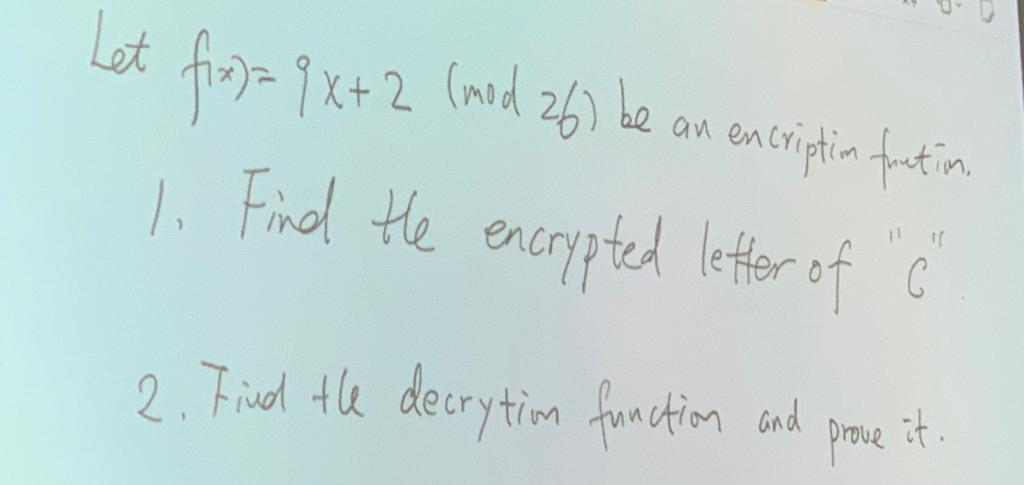 Let f(x) = 9x + 2 (mod 26) be an encription function.
1. Find the encrypted letter of "C".
2. Find the decrytion function and prove it.